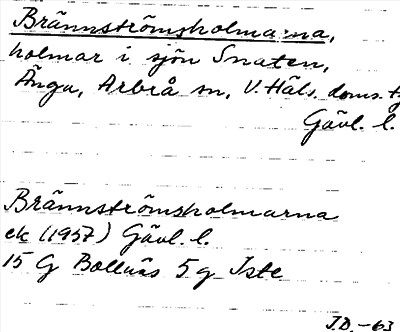 Brännströmsholmarna,
holmar i sjön Snaten,
Änga, Arbrå sn, V. Häls. doms.
Gävl. l.
Brännströmsholmarna
ek (1957) Gävl. l.
15 G Bollnäs 5 g Iste
J.D. -63